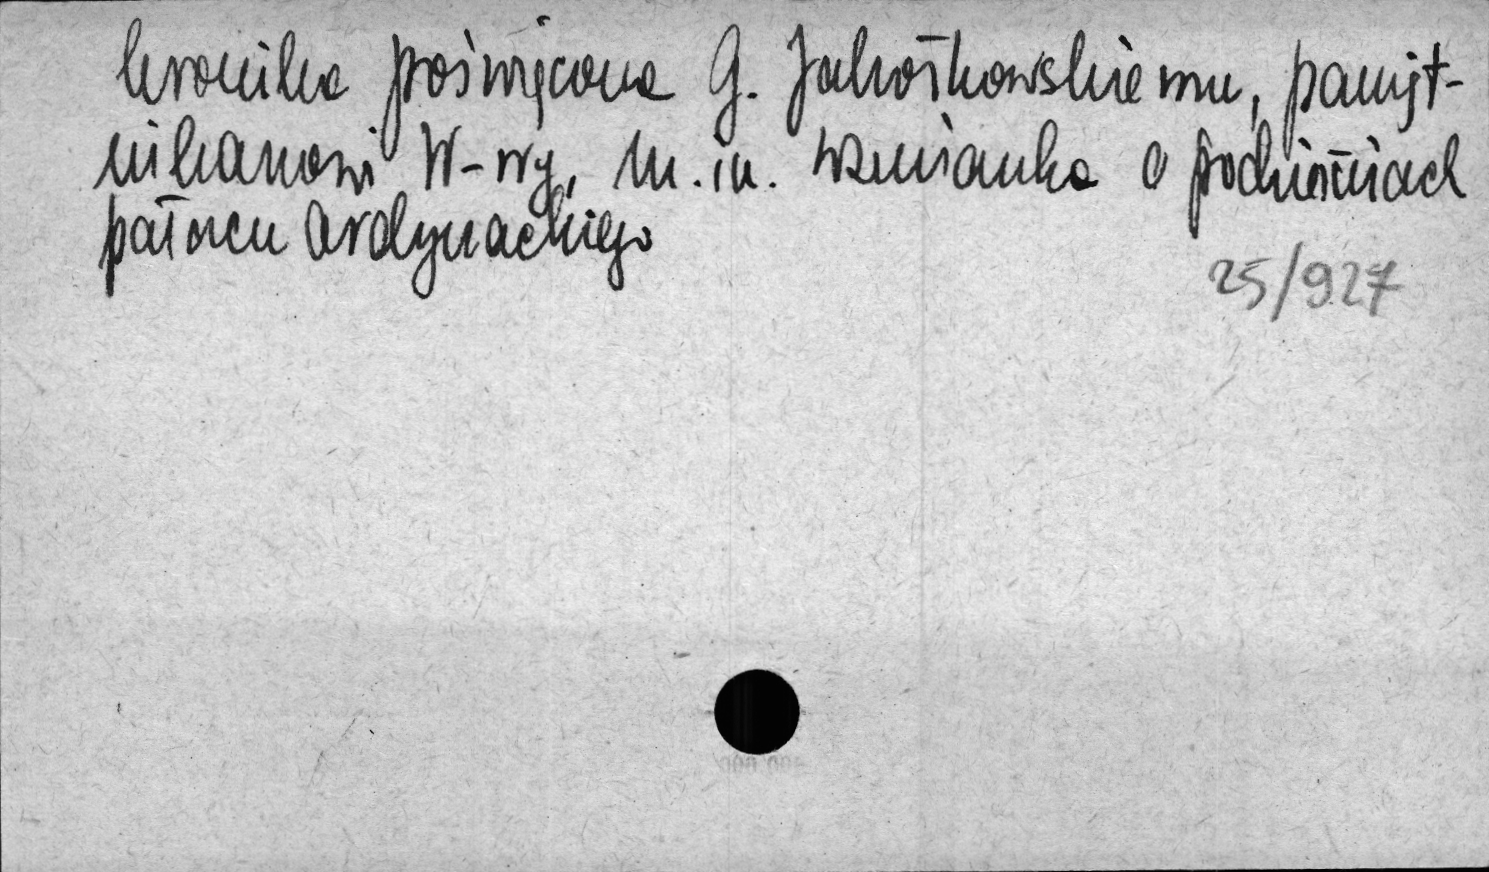 kronika poświęcona G. Jakoťkowskiemu, pamięt-
nikarowi W-wy, m.in. wzmianka o podziemiach
pałacu Ordynackiego
25/927